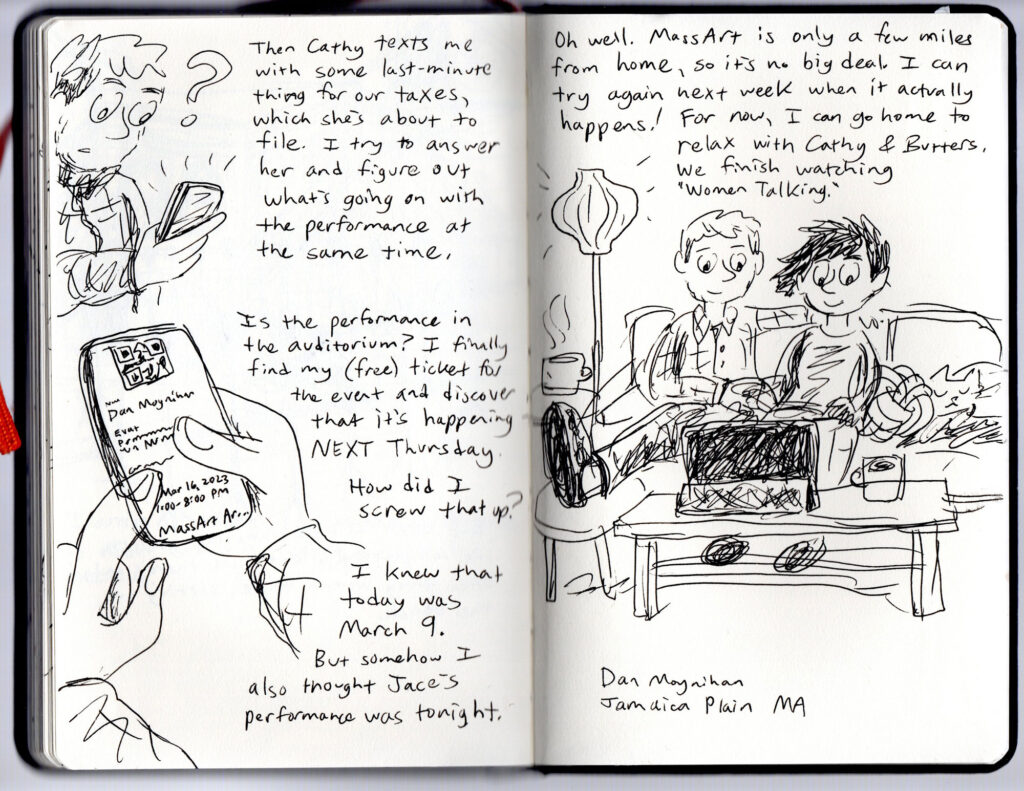 Then Cathy texts me
with some last-minute
thing for our taxes,
which she's about to
file. I try to answer
her and figure out
what's going on with
the performance at
the same time.
?
Is the performance in
the auditorium? I finally
find my (free) ticket for
the event and discover
that it's happening
NEXT Thursday.
How did I
screw that up?
I knew that
today was
March 9.
But somehow I
also thought Jace's
performance was tonight.
Dan Moynihan
Event
Mar 16, 2023
1:00-8:00 PM
MassArt Ar...
Oh well. MassArt is only a few miles
from home, so it's no big deal. I can
try again next week when it actually
happens! For now, I can go home to
relax with Cathy & Butters.
We finish watching
"Women Talking."
Dan Moynihan
Jamaica Plain MA